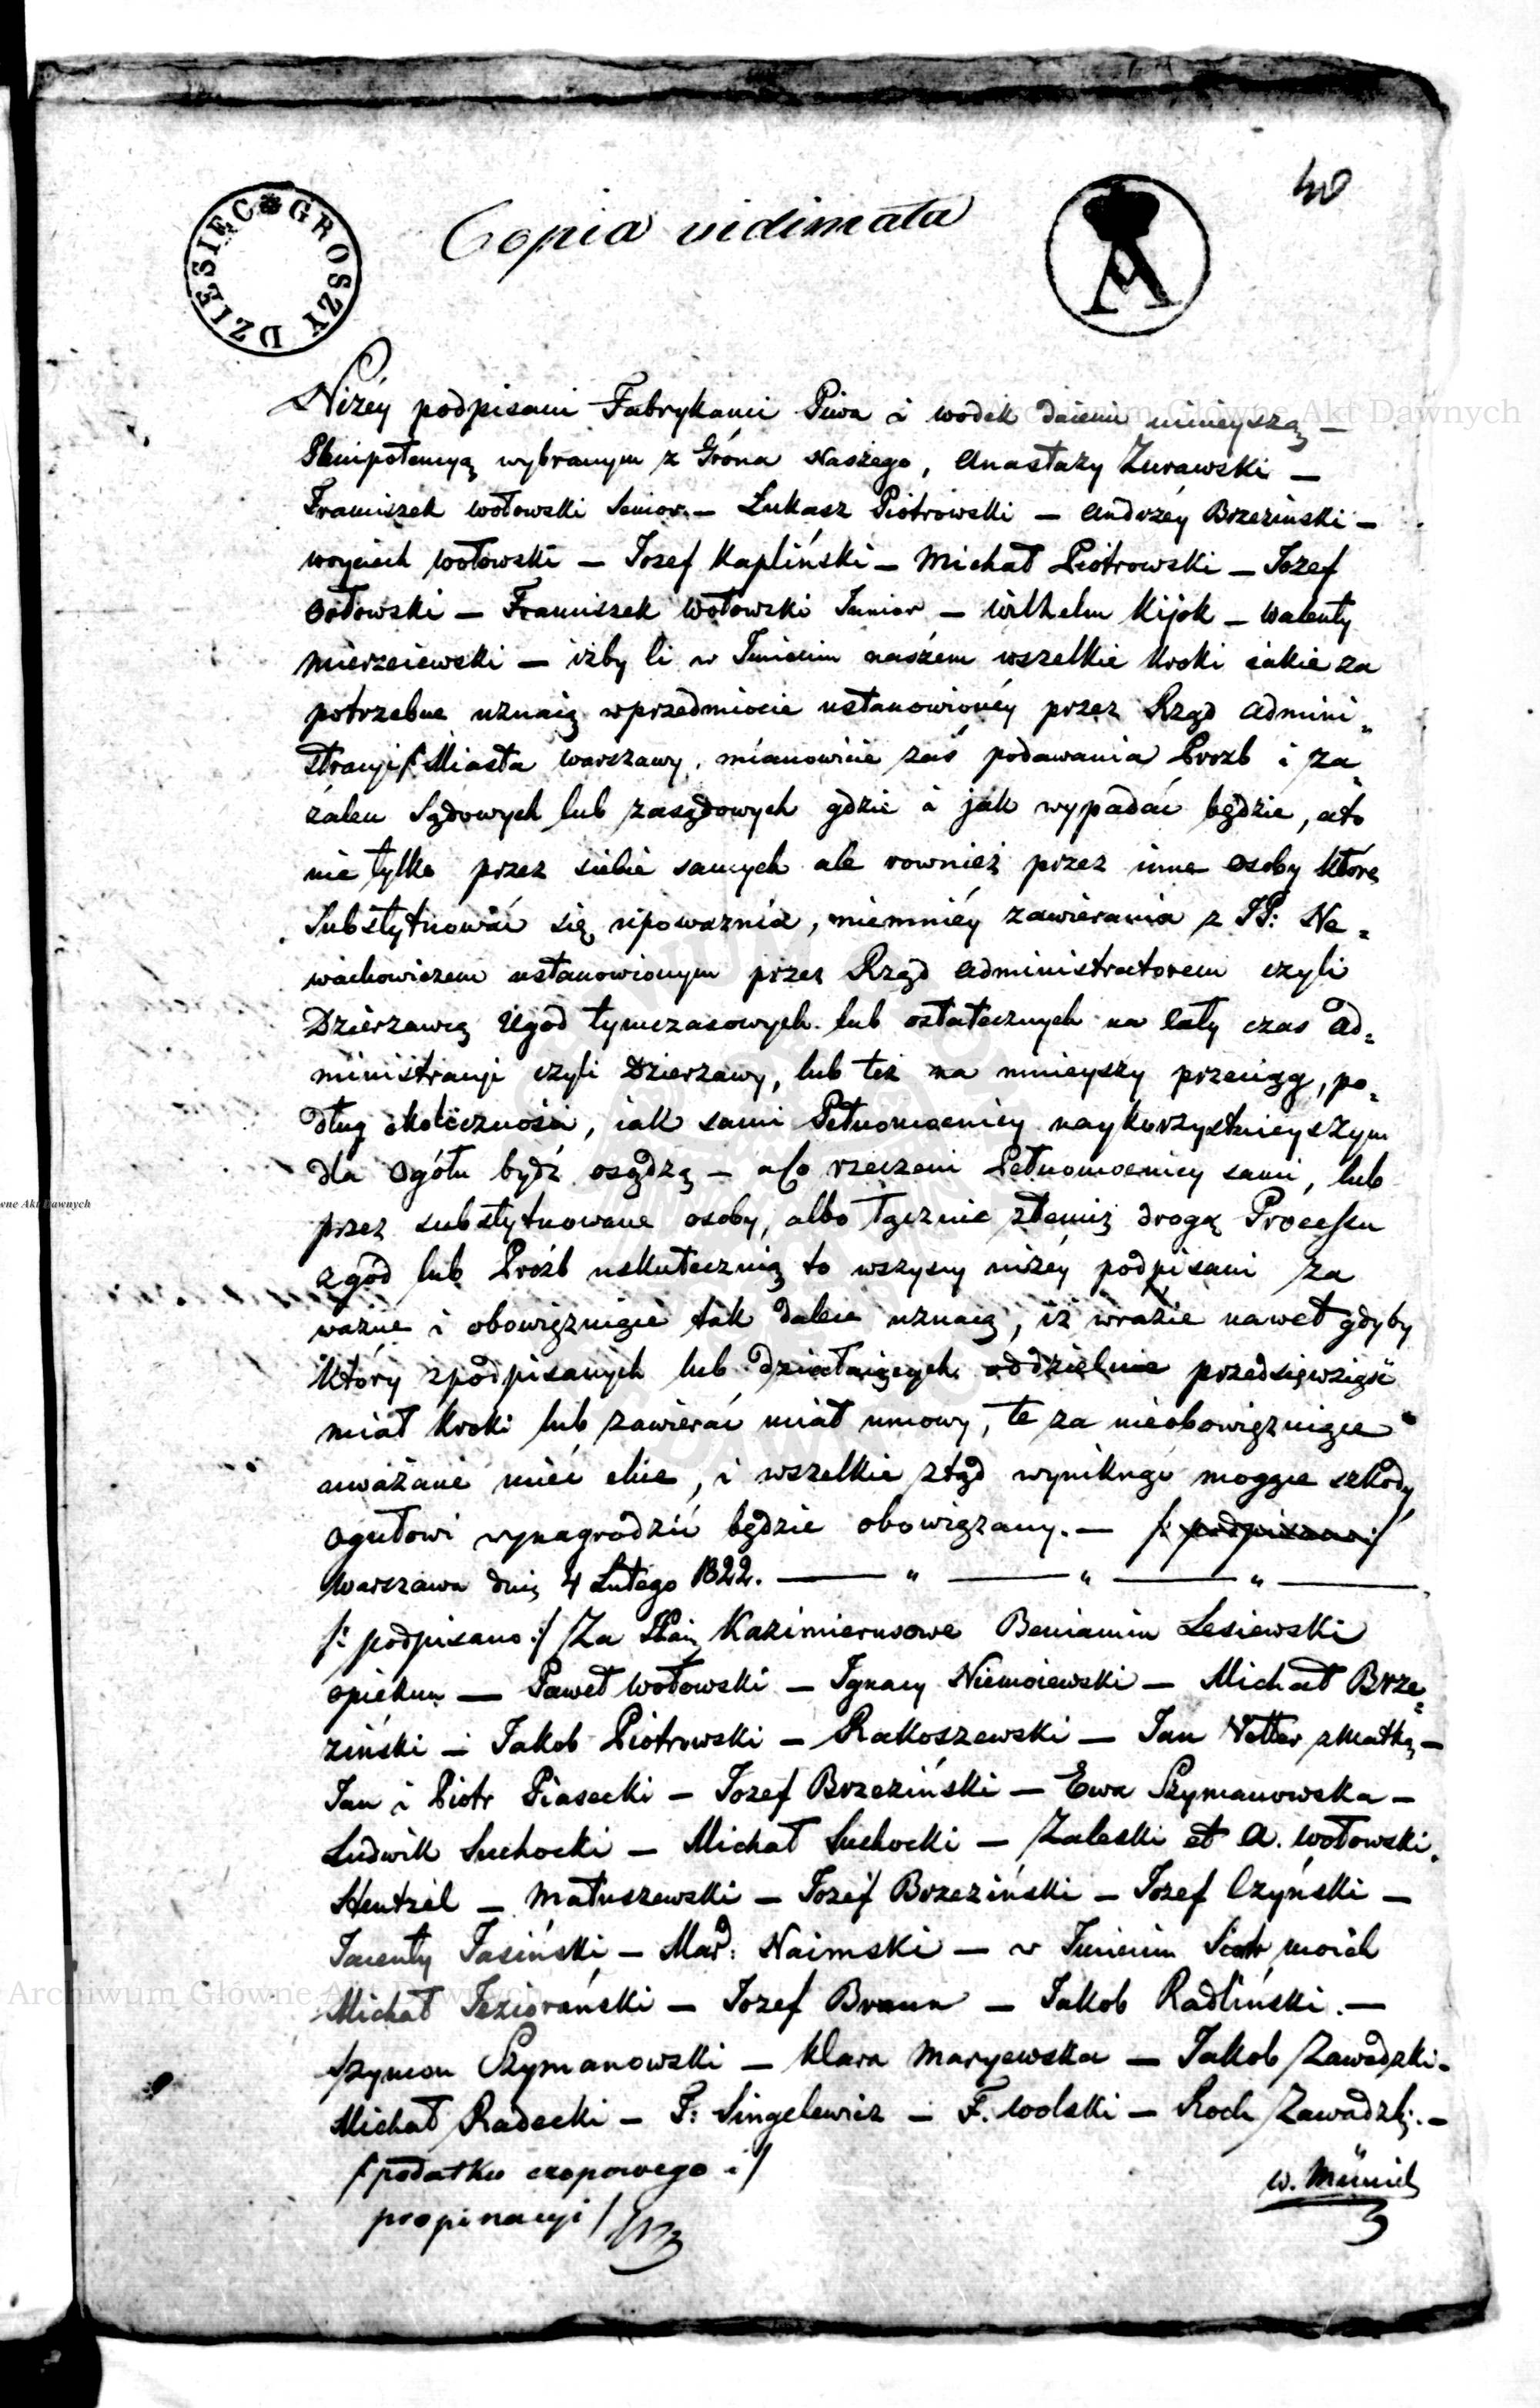 40
DZIESIĘC GROSZY
Copia vidimata
A
Niżéy podpisani Fabrykanci Piwa i wodek daiemy ninieyszą —
Plenipotencyą wybranym z Gróna Naszego, Anastazy Zurawski —
Franciszek Wołowski Senior — Łukasz Piotrowski — Andrzéy Brzezinski —
Woyciech Wołowski — Jozef Kapliński — Michał Piotrowski — Jozef
Osłowski — Franciszek Wołowski Junior — Wilhelm Kijok — Walenty
Mierzeiewski — iżby li w Imieniu naszém wszelkie kroki iakie za
potrzebne uznaią w przedmiocie ustanowionéy przez Rząd Admini„
stracyi /: Miasta Warszawy, mianowicie zaś podawania Prozb i Za„
żaleń Sądowych lub zasądowych gdzie i jak wypadać będzie, a to
nie tylko przez siebie samych ale rownież przez inne osoby które
Substytuować się upoważnia, niemniéy zawierania z JP: Ne„
wachowiczem ustanowionym przez Rząd Administratorem czyli
Dzierzawcą Ugod tymczasowych lub ostatecznych na cały czas Ad„
ministracyi czyli Dzierzawy, lub też na mnieyszy przeciąg, po„
dług okoliczności, iak sami Pełnomocnicy naykorzystnieyszym
dla Ogółu bydź osądzą — a co rzeczeni Pełnomocnicy sami, lub
przez substytuowane osoby, albo łącznie z temiż drogą Processu
zgód lub Próźb uskutecznią to wszyscy niżéy podpisani za
ważne i obowięzuiące tak dalece uznaią, iż w razie nawet gdyby
który z podpisanych lub działaiących oddzielnie przedsięwziąść
miał kroki lub zawierać miał umowy, te za nieobowięzuiące
uważane mieć chce, i wszelkie ztąd wyniknąć mogące szkody
ogułowi wynagrodzić będzie obowiązany. — /: podpisano :/
Warszawa dnia 4 Lutego 1822. — „ — „ — „ —
/: podpisano :/ Za Panią Kazimierusowe Beniamin Lesiewski
opiekun — Paweł Wołowski — Ignacy Niemoiewski — Michał Brze„
ziński — Jakob Piotrowski — Rakoszewski — Jan Vetter z Matką —
Jan i Piotr Piasecki — Jozef Brzeziński — Ewa Szymanowska —
Ludwik Suchocki — Michał Suchocki — Zaleski et A. Wołowski.
Hentzel — Matuszewski — Jozef Brzeziński — Jozef Czyński —
Jacenty Jasiński — Mar: Naimski — w Imieniu Siostr moich
Michał Jeziorański — Jozef Braun — Jakob Radliński. —
Szymon Szymanowski — Klara Maryewska — Jakob Zawadzki —
Michał Radecki — J: Singelewicz — F. Wolski — Roch Zawadzki. —
/: podatku czopowego :/
propinacyi /
W. Münich
Archiwum Główne Akt Dawnych
Archiwum Główne Akt Dawnych
wne Akt Dawnych